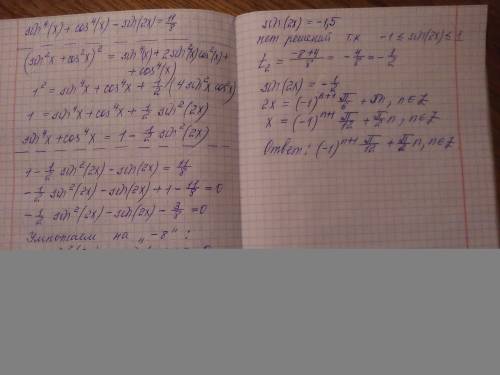 sin⁴(x) + cos⁴(x) - sin(2x) = 11/8
(sin²x + cos²x)² = sin⁴(x) + 2sin²(x)cos²(x) +
+ cos⁴(x)
1² = sin⁴x + cos⁴x + 1/2 (4sin²x cos²x)
1 = sin⁴x + cos⁴x + 1/2 sin²(2x)
sin⁴x + cos⁴x = 1 - 1/2 sin²(2x)
1 - 1/2 sin²(2x) - sin(2x) = 11/8
-1/2 sin²(2x) - sin(2x) + 1 - 11/8 = 0
-1/2 sin²(2x) - sin(2x) - 3/8 = 0
Умножаем на "-8":
sin(2x) = -1,5
нет решений т.к -1 ≤ sin(2x) ≤ 1
t₂ = (-8+4)/8 = -4/8 = -1/2
sin(2x) = -1/2
2x = (-1)ⁿ⁺¹ π/6 + πn, n∈Z
x = (-1)ⁿ⁺¹ π/12 + π/2 n, n∈Z
Ответ: (-1)ⁿ⁺¹ π/12 + π/2 n, n∈Z